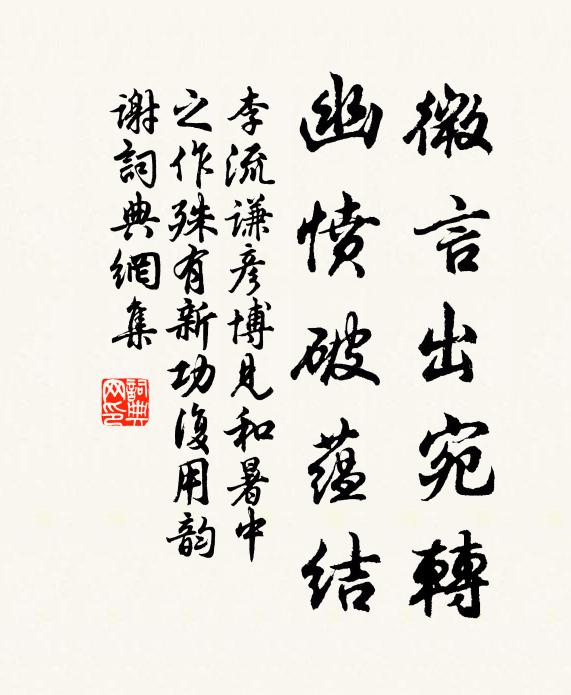 微言出宛轉
幽憤破蘊結
李流謙彥博見和暑中
之作殊有新功復用韵
謝詞典網集
詞典网印